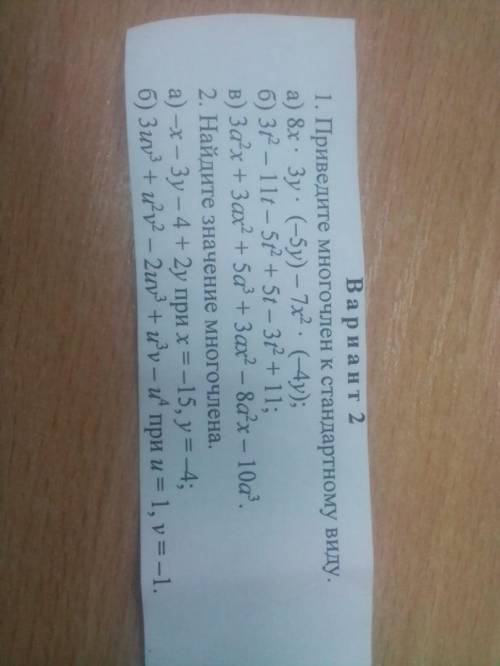 Вариант 2
1. Приведите многочлен к стандартному виду.
а) 8x · 3y · (−5y) − 7x² · (−4y);
б) 3t² − 11t − 5t² + 5t − 3t² + 11;
в) 3a²x + 3ax² + 5a³ + 3ax² − 8a²x − 10a³.
2. Найдите значение многочлена.
а) −x − 3y − 4 + 2y при x = −15, y = −4;
б) 3uv³ + u²v² − 2uv³ + u³v − u⁴ при u = 1, v = −1.